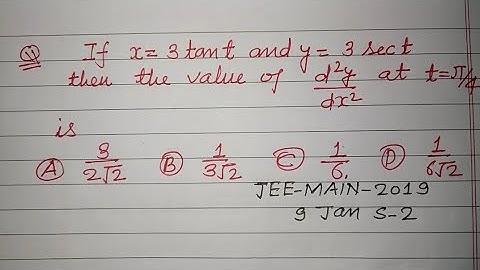 Q If x = 3 tan t and y = 3 sec t
then the value of d²y/dx² at t = π/4
is
A 3/2√2 B 1/3√2 C 1/6. D 1/6√2
JEE-MAIN-2019
9 Jan S-2